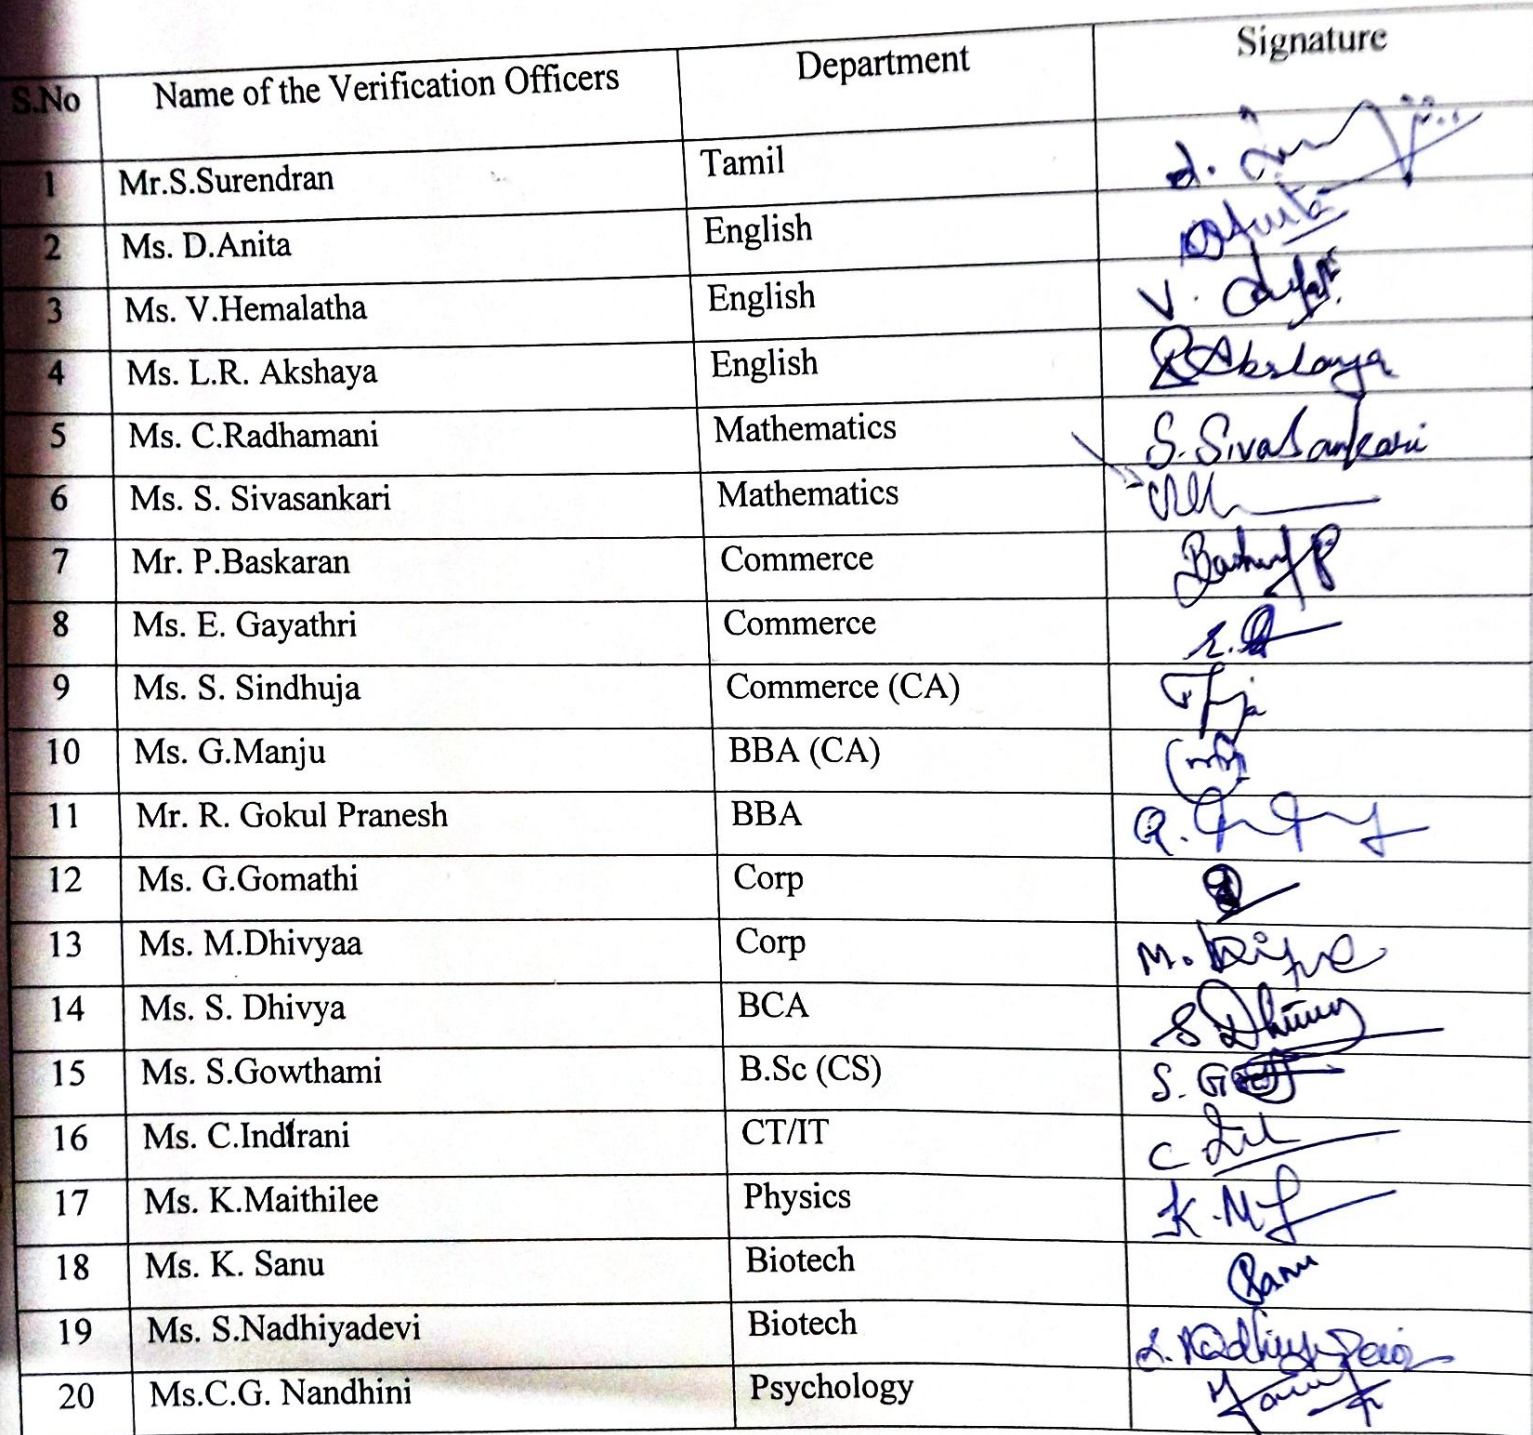 S.No Name of the Verification Officers Department Signature
1 Mr.S.Surendran Tamil
2 Ms. D.Anita English
3 Ms. V.Hemalatha English V.
4 Ms. L.R. Akshaya English Akshaya
5 Ms. C.Radhamani Mathematics S. Sivasankari
6 Ms. S. Sivasankari Mathematics
7 Mr. P.Baskaran Commerce
8 Ms. E. Gayathri Commerce
9 Ms. S. Sindhuja Commerce (CA)
10 Ms. G.Manju BBA (CA)
11 Mr. R. Gokul Pranesh BBA
12 Ms. G.Gomathi Corp
13 Ms. M.Dhivyaa Corp M.
14 Ms. S. Dhivya BCA
15 Ms. S.Gowthami B.Sc (CS) S.
16 Ms. C.Indirani CT/IT C
17 Ms. K.Maithilee Physics K.M
18 Ms. K. Sanu Biotech Sanu
19 Ms. S.Nadhiyadevi Biotech
20 Ms.C.G. Nandhini Psychology